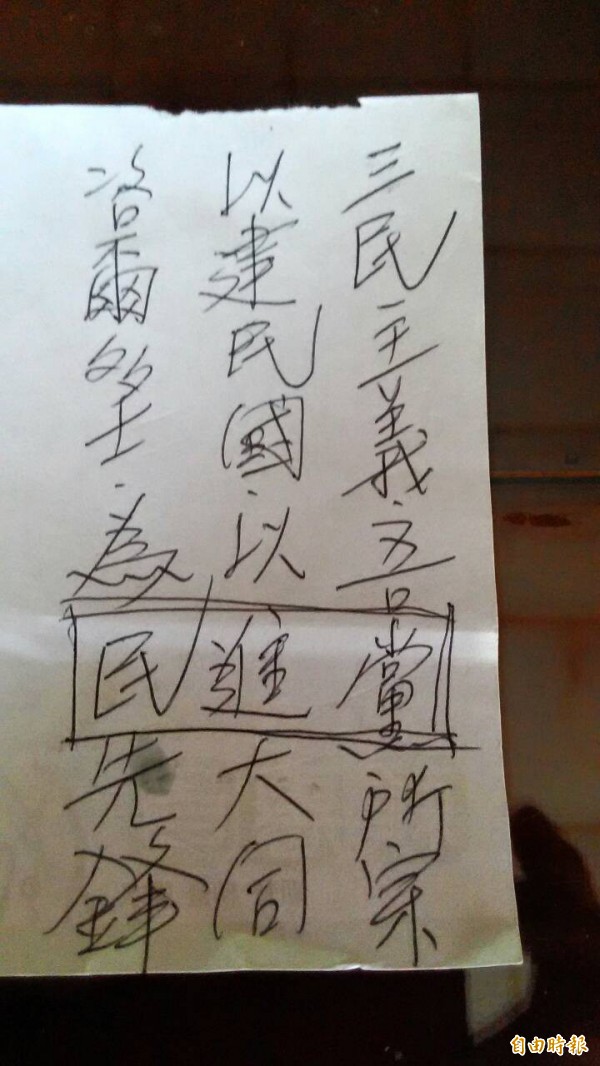 三民主義、吾黨所宗
以建民國、以進大同
咨爾多士、為民先鋒
自由時報